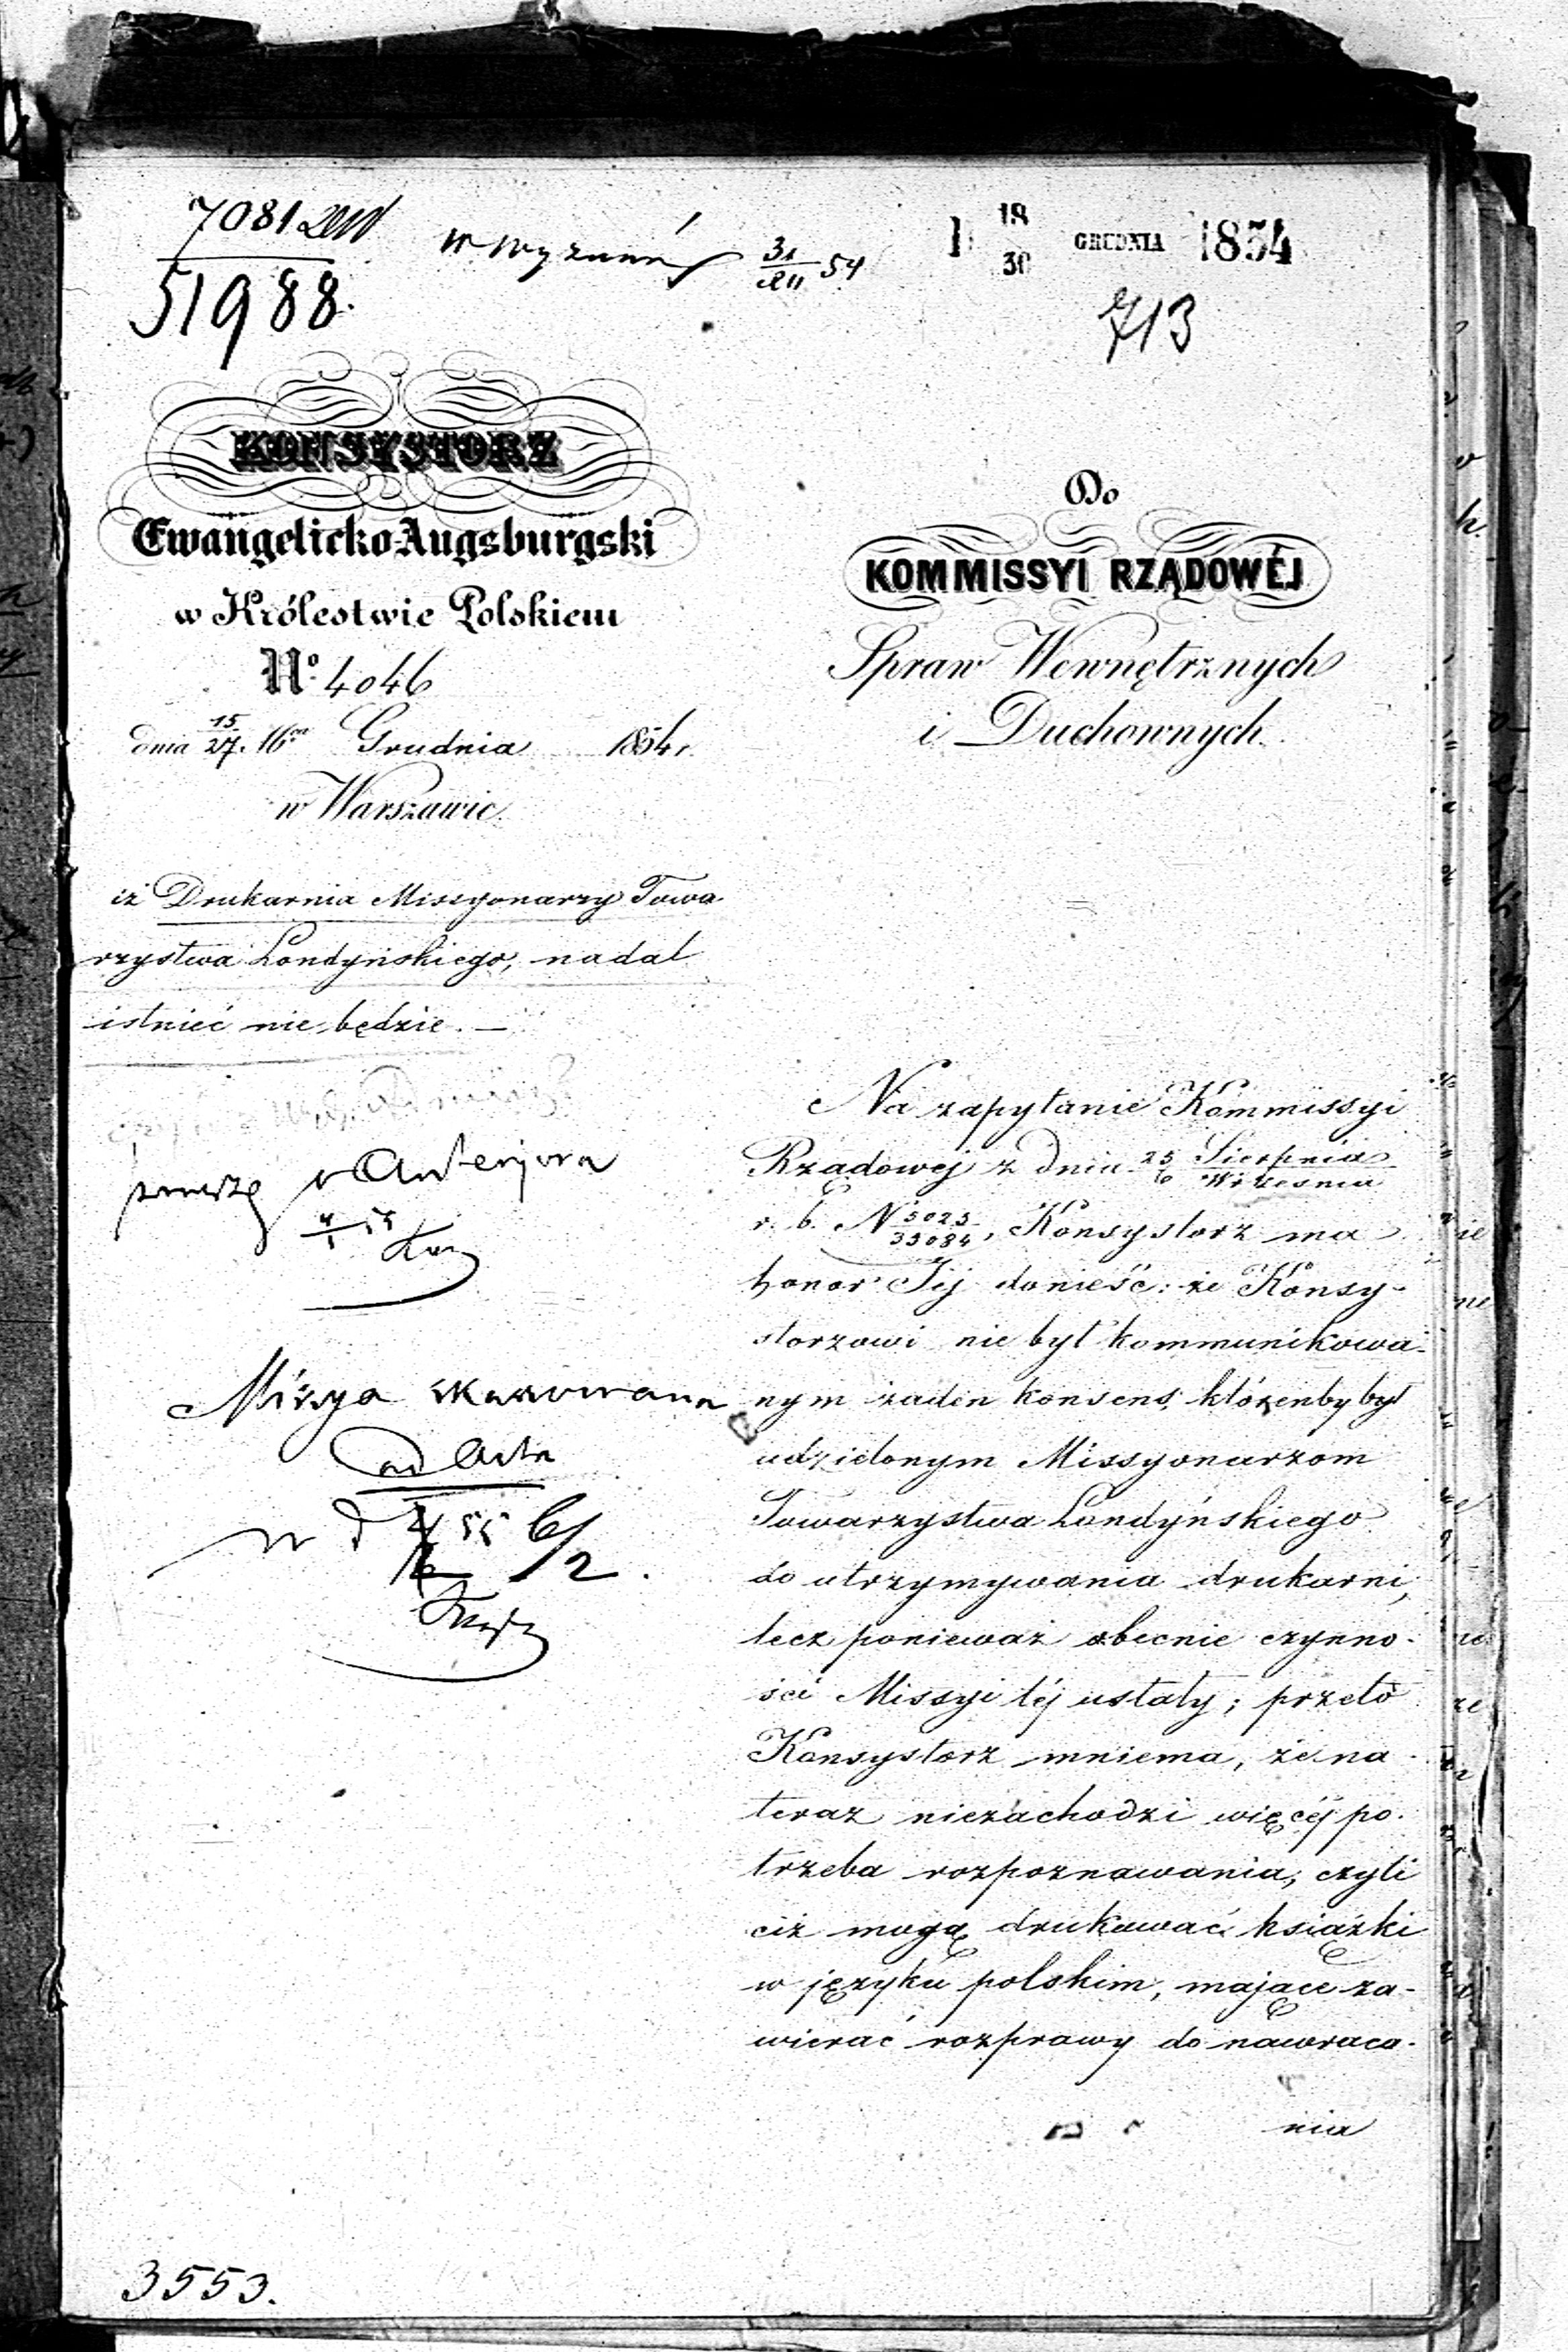 7081
51988.
w wyznań 31/XII 54
18/30 GRUDNIA 1854
713
KONSYSTORZ
Ewangelicko-Augsburgski
w Królestwie Polskiem
No. 4046
dnia 15/27. Grudnia 1854 r.
w Warszawie.
Do
KOMMISSYI RZĄDOWÉJ
Spraw Wewnętrznych
i Duchownych.
iż Drukarnia Missyonarzy Towa-
rzystwa Londyńskiego, nadal
istnieć nie będzie. —
proszę o Anteriora
Missya skassowana
ad acta
Na zapytanie Kommissyi
Rządowej z dnia 25/6 Sierpnia/Września
r. b. N 5025/33084, Konsystorz ma
honor Jéj donieść: że Konsy-
storzowi nie był kommunikowa-
nym żaden konsens, którenby był
udzielonym Missyonarzom
Towarzystwa Londyńskiego
do utrzymywania drukarni,
lecz ponieważ obecnie czynno-
ści Missyi téj ustały; przeto
Konsystorz mniema, że na
teraz niezachodzi więcéj po-
trzeba rozpoznawania, czyli
ciż mogą drukować książki
w języku polskim, mające za-
wierać rozprawy do nawraca-
nia
3553.